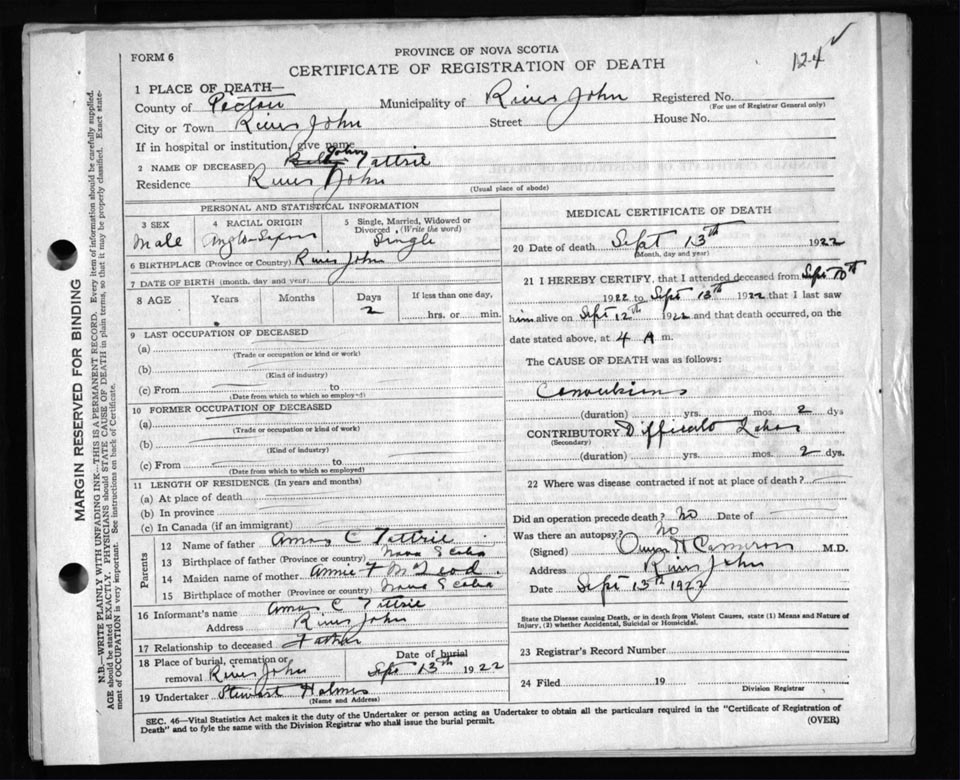 124
PROVINCE OF NOVA SCOTIA
FORM 6
CERTIFICATE OF REGISTRATION OF DEATH
1 PLACE OF DEATH—
County of Pictou Municipality of River John Registered No.
(For use of Registrar General only)
City or Town River John Street House No.
If in hospital or institution, give name
2 NAME OF DECEASED John Tattrie
Residence River John
(Usual place of abode)
PERSONAL AND STATISTICAL INFORMATION
3 SEX 4 RACIAL ORIGIN 5 Single, Married, Widowed or Divorced. (Write the word)
Male Anglo-Saxon Single
6 BIRTHPLACE (Province or Country) River John
7 DATE OF BIRTH (month, day and year)
8 AGE Years Months Days If less than one day,
2 hrs. or min.
9 LAST OCCUPATION OF DECEASED
(a)
(Trade or occupation or kind or work)
(b)
(Kind of industry)
(c) From to
(Date from which to which so employed)
10 FORMER OCCUPATION OF DECEASED
(a)
(Trade or occupation or kind of work)
(b)
(Kind of industry)
(c) From to
(Date from which to which so employed)
11 LENGTH OF RESIDENCE (In years and months)
(a) At place of death
(b) In province
(c) In Canada (if an immigrant)
Parents
12 Name of father Amos C Tattrie
13 Birthplace of father (Province or country) Nova Scotia
14 Maiden name of mother Annie F McLeod
15 Birthplace of mother (Province or country) Nova Scotia
16 Informant's name Amos C Tattrie
Address River John
17 Relationship to deceased Father
18 Place of burial, cremation or Date of burial
removal River John Sept 13th 1922
19 Undertaker Stewart Holmes
(Name and Address)
MEDICAL CERTIFICATE OF DEATH
20 Date of death Sept 13th 1922
(Month, day and year)
21 I HEREBY CERTIFY, that I attended deceased from Sept 10th
1922 to Sept 13th 1922 that I last saw
him alive on Sept 12th 1922 and that death occurred, on the
date stated above, at 4 A m.
The CAUSE OF DEATH was as follows:
Convulsions
(duration) yrs. mos. 2 dys
CONTRIBUTORY Difficult Labor
(Secondary)
(duration) yrs. mos. 2 dys.
22 Where was disease contracted if not at place of death?
Did an operation precede death? No Date of
Was there an autopsy? No
(Signed) H Cameron M.D.
Address River John
Date Sept 13th 1922
State the Disease causing Death, or in death from Violent Causes, state (1) Means and Nature of
Injury, (2) whether Accidental, Suicidal or Homicidal.
23 Registrar's Record Number
24 Filed 19
Division Registrar
SEC. 46—Vital Statistics Act makes it the duty of the Undertaker or person acting as Undertaker to obtain all the particulars required in the "Certificate of Registration of
Death" and to fyle the same with the Division Registrar who shall issue the burial permit. (OVER)
MARGIN RESERVED FOR BINDING
N.B.—WRITE PLAINLY WITH UNFADING INK—THIS IS A PERMANENT RECORD. Every item of information should be carefully supplied.
AGE should be stated EXACTLY. PHYSICIANS should STATE CAUSE OF DEATH in plain terms, so that it may be properly classified. Exact state-
ment of OCCUPATION is very important. See instructions on back of Certificate.